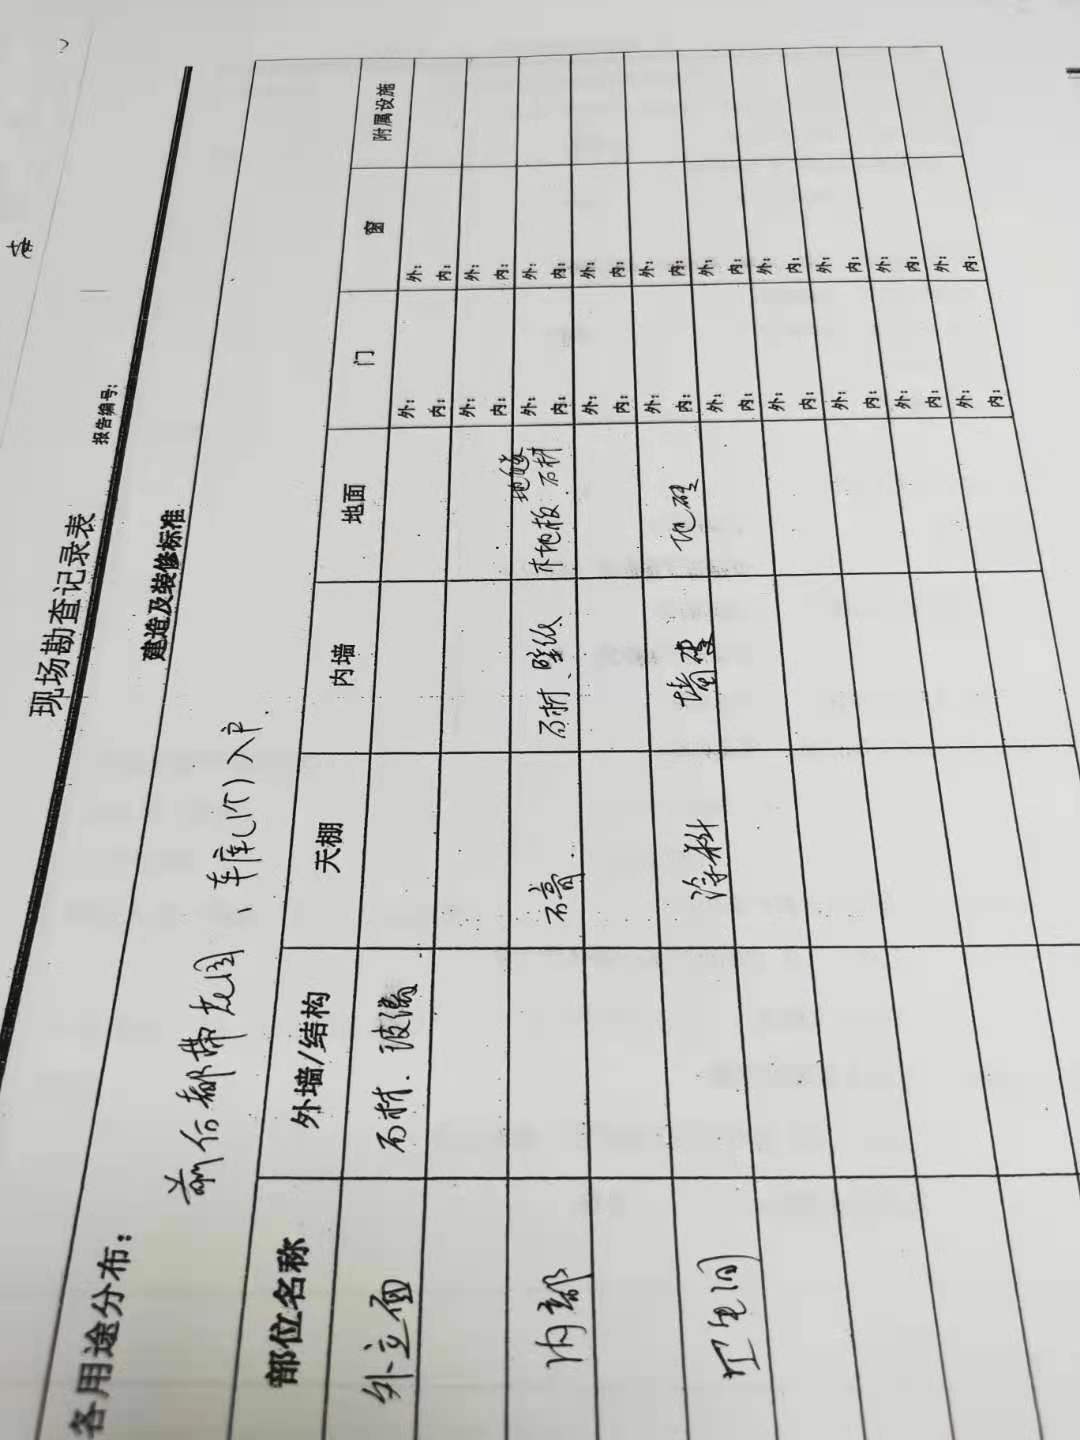 现场勘查记录表
报告编号:
建造及装修标准
各用途分布:
前后都带花园、车库(1个)入户.
部位名称 外墙/结构 天棚 内墙 地面 门 窗 附属设施
外立面 石材.玻璃 外: 内: 外: 内:
外: 内: 外: 内:
内部 石膏. 石材、壁纸 木地板.石材 外: 内: 外: 内:
外: 内: 外: 内:
卫生间 涂料 墙砖 地砖 外: 内: 外: 内:
外: 内: 外: 内:
外: 内: 外: 内:
外: 内: 外: 内:
外: 内: 外: 内:
外: 内: 外: 内: